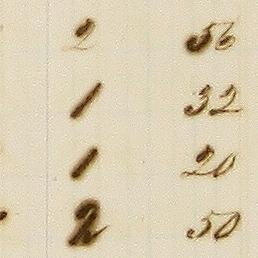 2 56
1 32
1 20
2 50